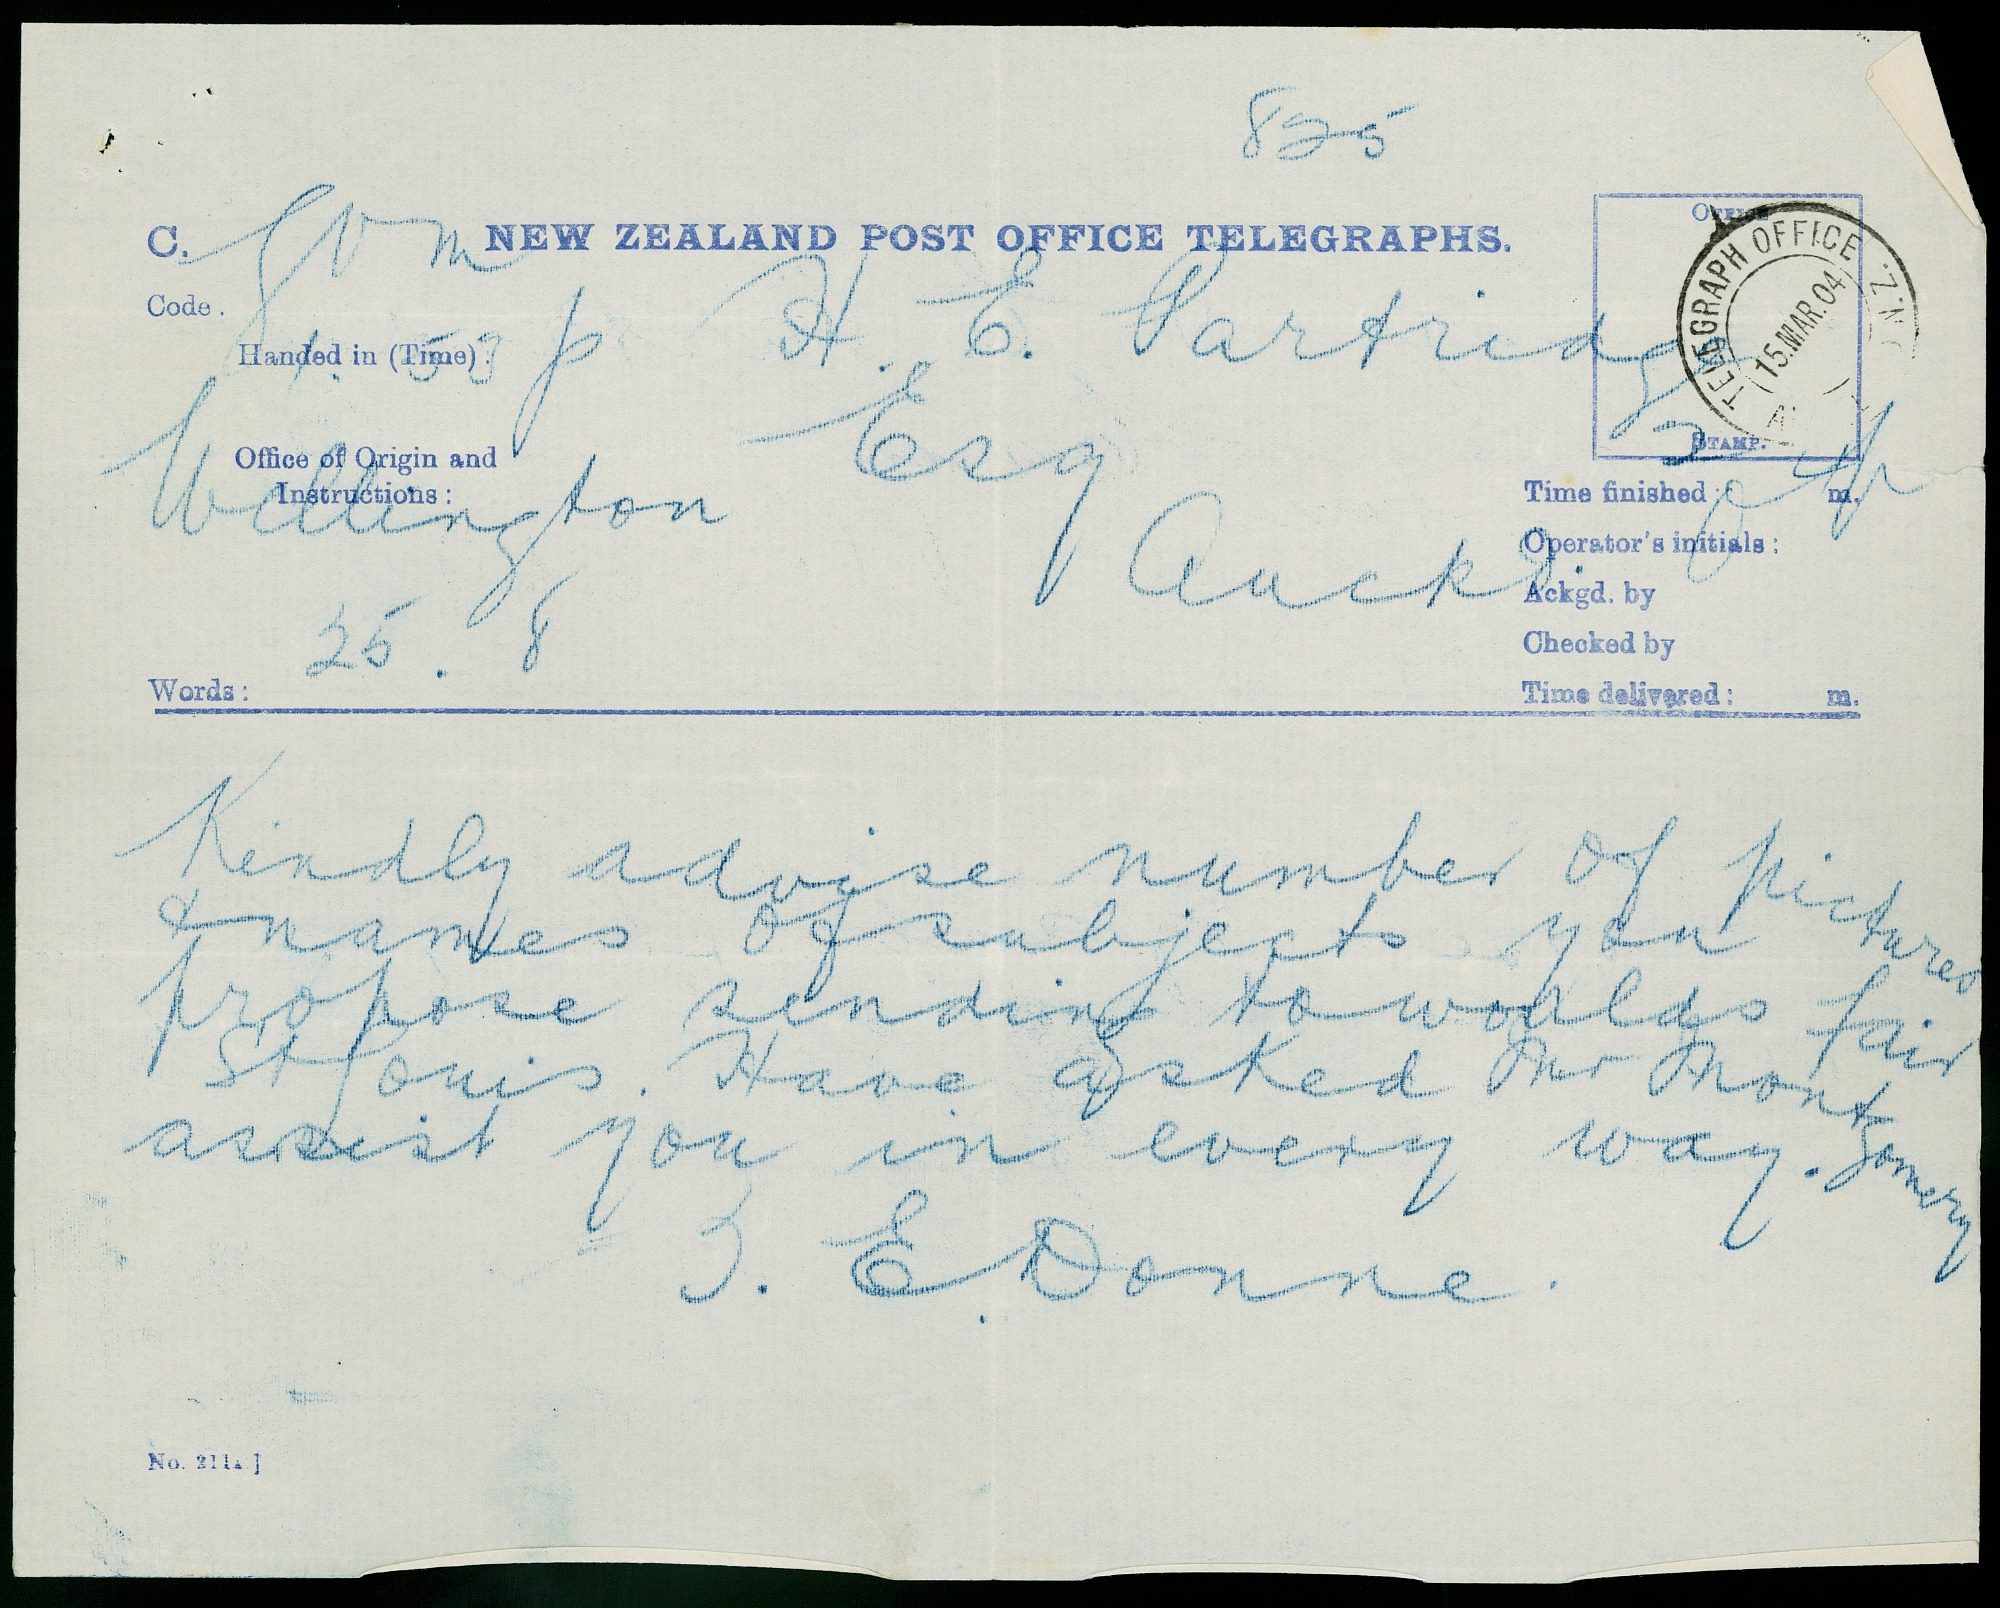 825
C. Gvm NEW ZEALAND POST OFFICE TELEGRAPHS.
OFFICE
STAMP.
TELEGRAPH OFFICE N.Z.
15.MAR.04
Code.
H. E. Partridge
Handed in (Time): 1.53 p
Esq
Office of Origin and
Instructions:
Wellington
Auckd.
Time finished: m.
Operator's initials:
Ackgd. by
Checked by
25. 8
Words:
Time delivered: m.
Kindly advise number of pictures
& names of subjects you
propose sending to worlds fair
St Louis. Have asked Mr Montgomery
assist you in every way.
T. E. Donne.
No. 211A]